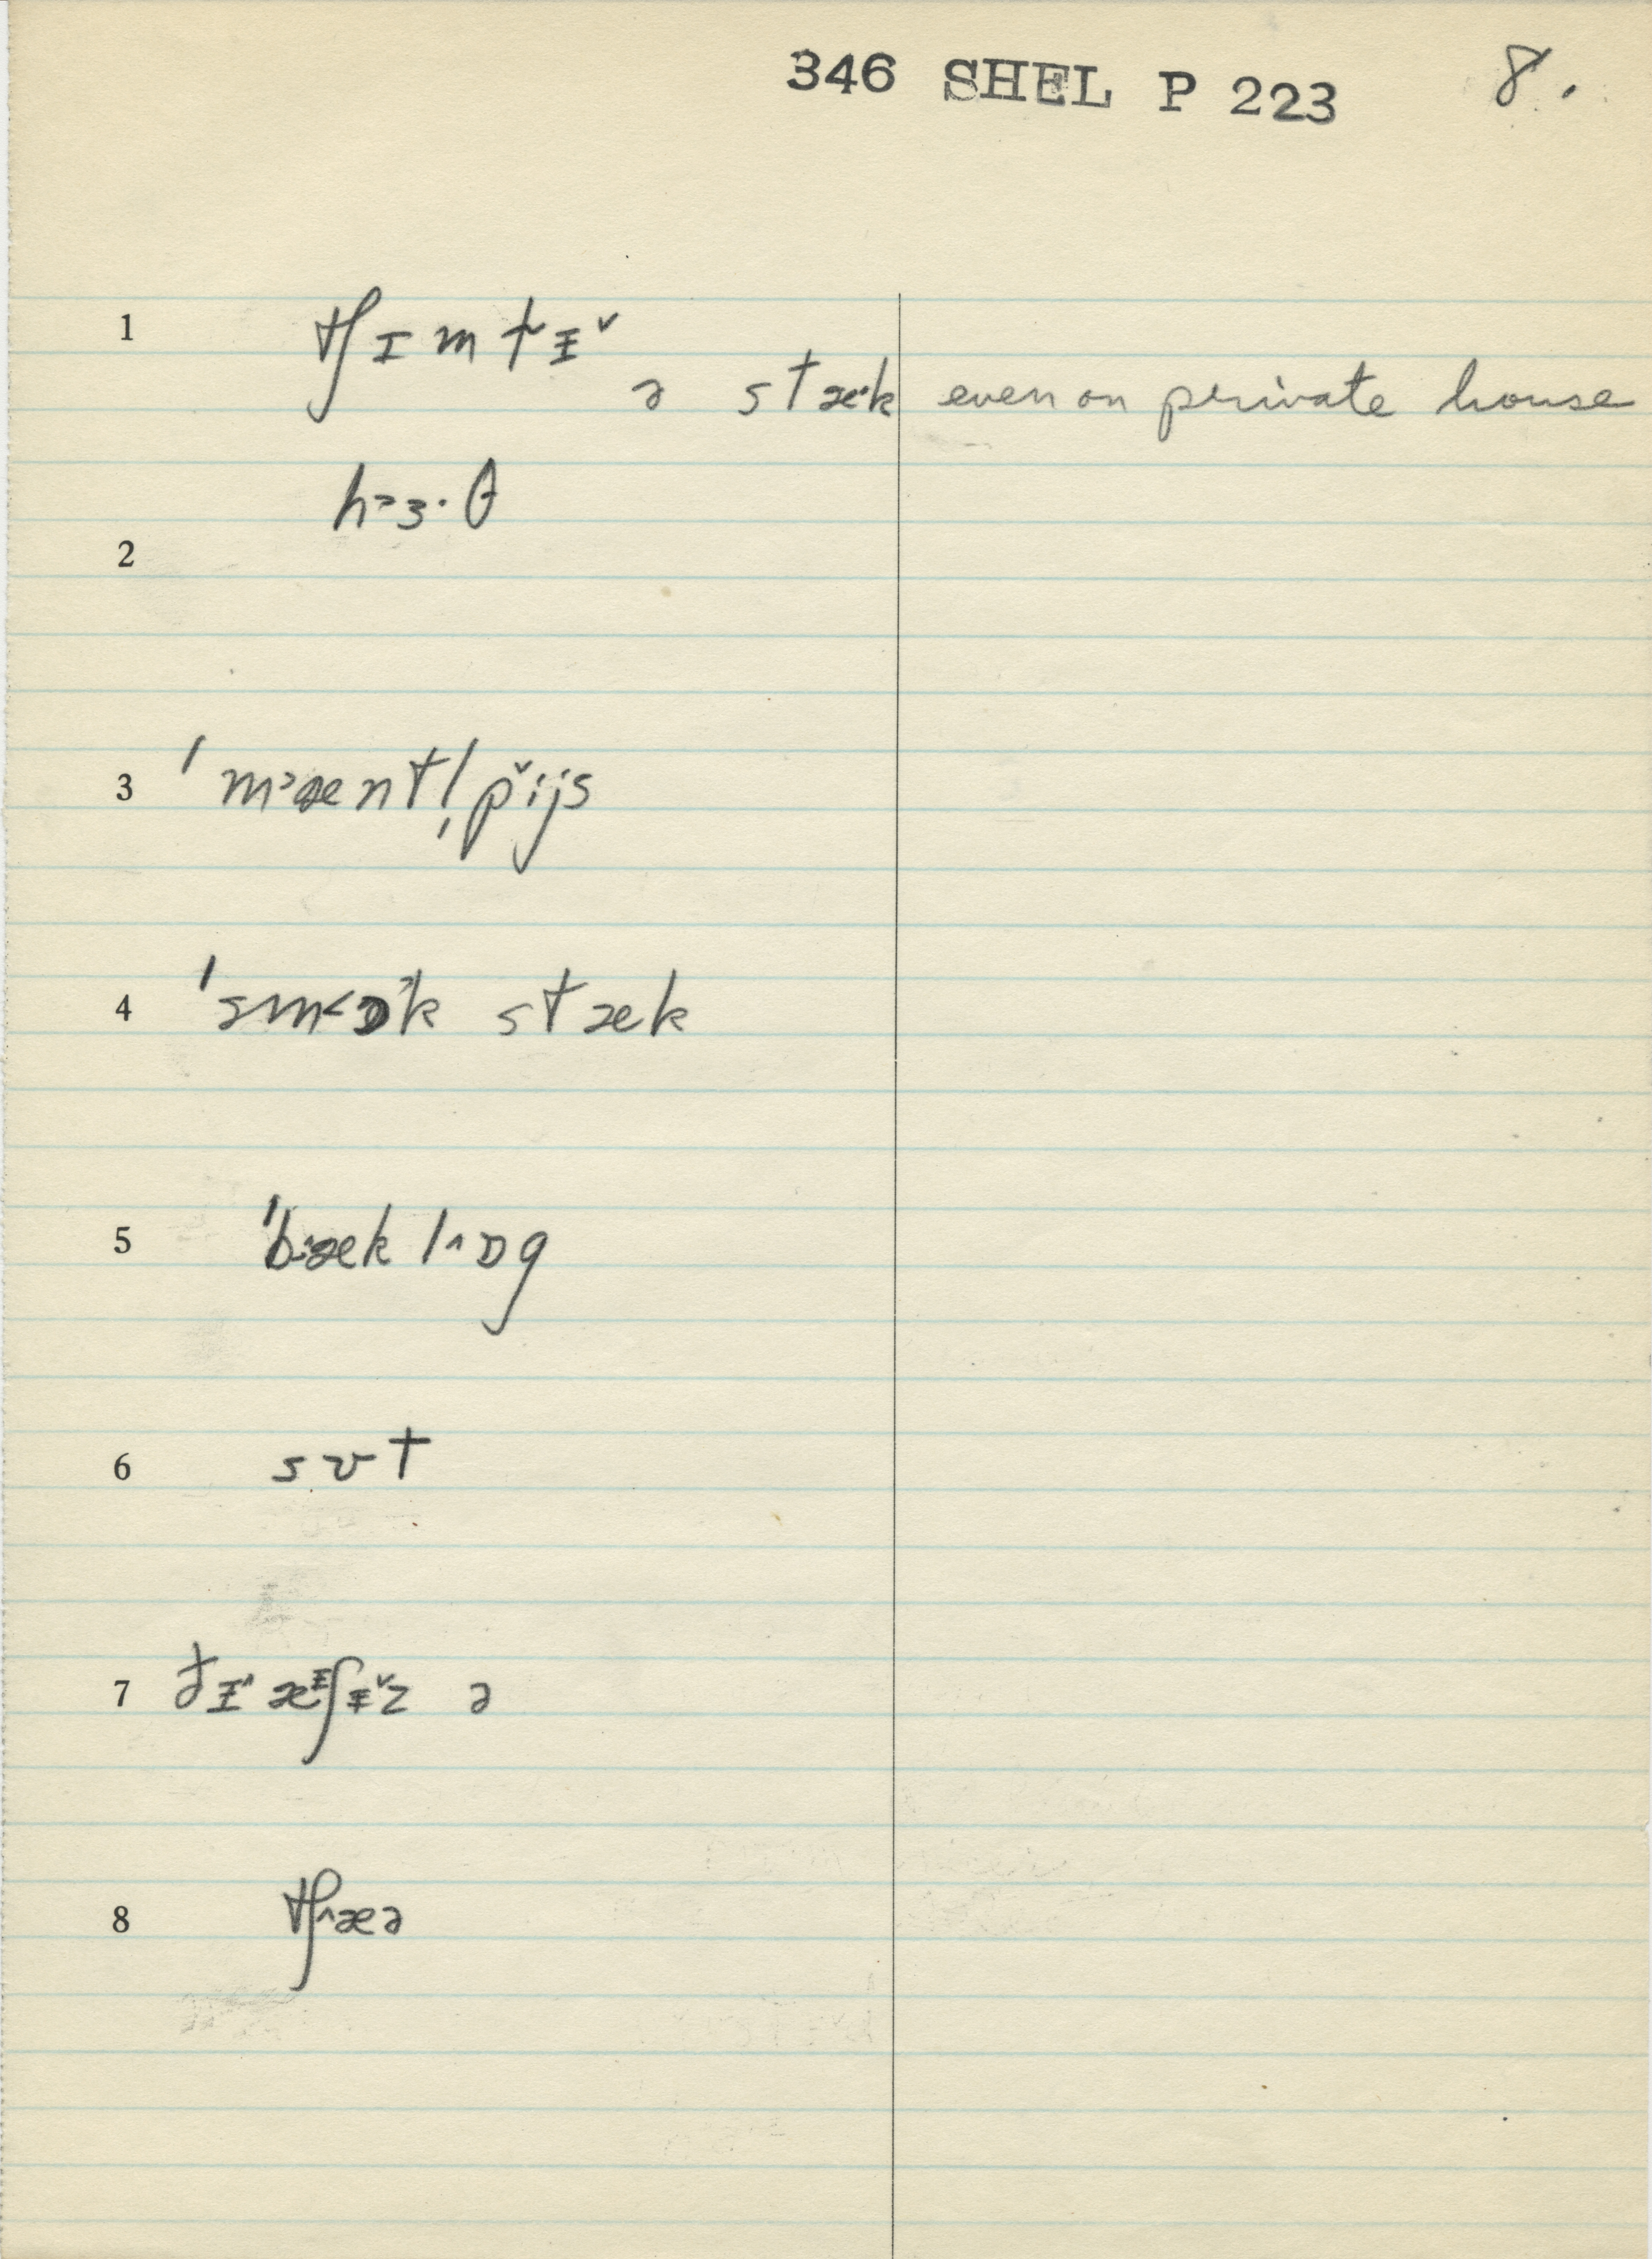 346 SHEL P 223 8.
1 tʃɪmtɪ̵ˇ
ə stæˑk even on private house
h˃ɜ·θ
2
3 ˈm˃æntl̩pˇijs
4 ˈsm˂ɒ˃k stæk
5 ˈb˔æk l˄ɒg
6 sʊt
7 ðɪ˄ æᵻʃᵻˇz ə
8 tʃ˄æə